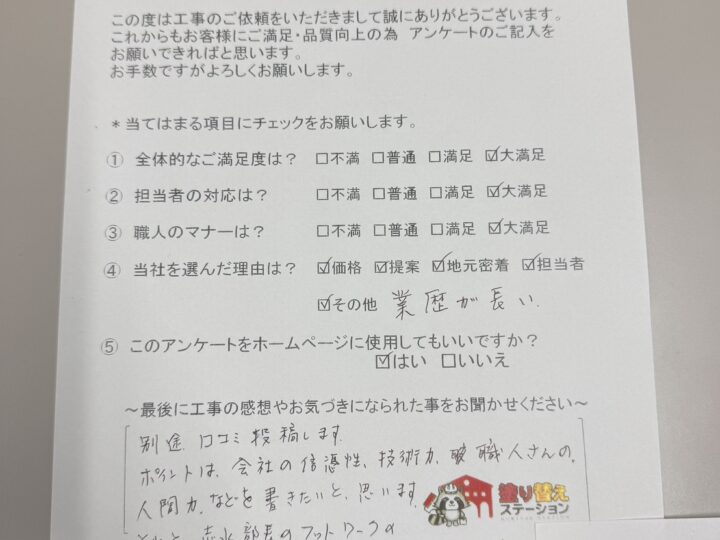 この度は工事のご依頼をいただきまして誠にありがとうございます。
これからもお客様にご満足・品質向上の為 アンケートのご記入を
お願いできればと思います。
お手数ですがよろしくお願いします。
*当てはまる項目にチェックをお願いします。
① 全体的なご満足度は? □不満 □普通 □満足 ☑大満足
② 担当者の対応は? □不満 □普通 □満足 ☑大満足
③ 職人のマナーは? □不満 □普通 □満足 ☑大満足
④ 当社を選んだ理由は? ☑価格 ☑提案 ☑地元密着 ☑担当者
☑その他 業歴が長い.
⑤ このアンケートをホームページに使用してもいいですか?
☑はい □いいえ
~最後に工事の感想やお気づきになられた事をお聞かせください~
別途 口コミ投稿します.
ポイントは、会社の信憑性、技術力、職人さんの、
人間力、などを書きたいと、思います
赤水部長のフットワークの
塗り替え
ステーション